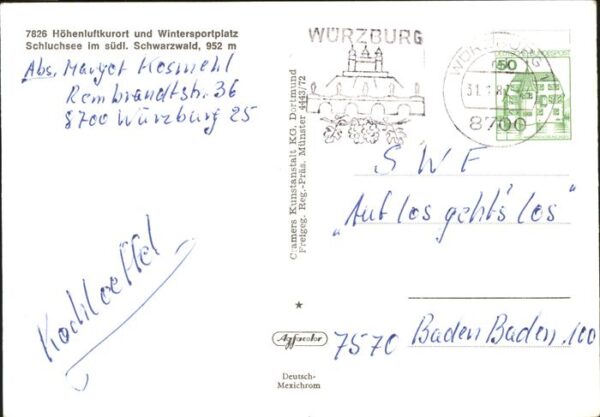 7826 Höhenluftkurort und Wintersportplatz
Schluchsee im südl. Schwarzwald, 952 m
Abs. Margot Kosmehl
Rembrandtstr. 36
8700 Würzburg 25
Kochloeffel
Cramers Kunstanstalt KG, Dortmund
Freigeg. Reg.-Präs. Münster 4443/72
WÜRZBURG
8700
50
SWF
"Auf los geht's los"
7570 Baden Baden 100
Agfacolor
Deutsch-
Mexichrom